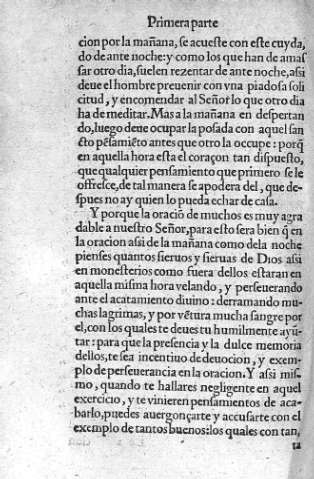 Primera parte
cion por la mañana, se acueste con este cuyda,
do de ante noche: y como los que han de amas
sar otro dia, suelen rezentar de ante noche, assi
deue el hombre preuenir con vna piadosa soli
citud, y encomendar al Señor lo que otro dia
ha de meditar. Mas a la mañana en despertan
do, luego deue ocupar la posada con aquel san
cto pẽsamiẽto antes que otro la occupe: porq̃
en aquella hora esta el coraçon tan dispuesto,
que qualquier pensamiento que primero se le
offresce, de tal manera se apodera del, que de-
spues no ay quien lo pueda echar de casa.
Y porque la oraciõ de muchos es muy agra
dable a nuestro Señor, para esto sera bien q̃ en
la oracion assi de la mañana como dela noche
pienses quantos sieruos y sieruas de Dios assi
en monesterios como fuera dellos estaran en
aquella misma hora velando, y perseuerando
ante el acatamiento diuino: derramando mu-
chas lagrimas, y por vẽtura mucha sangre por
el, con los quales te deues tu humilmente ayũ-
tar: para que la presencia y la dulce memoria
dellos, te sea incentiuo de deuocion, y exem-
plo de perseuerancia en la oracion. Y assi mis-
mo, quando te hallares negligente en aquel
exercicio, y te vinieren pensamientos de aca-
barlo, puedes auergonçarte y accusarte con el
exemplo de tantos buenos: los quales con tan,
ta